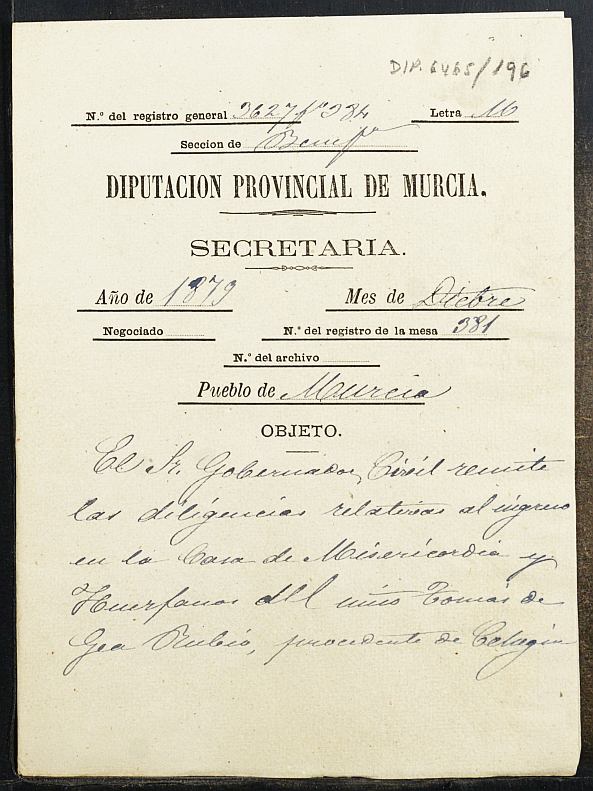 DIP. 6465/196
N.º del registro general 3627 fº 384 Letra M
Seccion de Benefª
DIPUTACION PROVINCIAL DE MURCIA.
SECRETARIA.
Año de 1879 Mes de Octebre
Negociado N.º del registro de la mesa 381
N.º del archivo
Pueblo de Murcia
OBJETO.
El Sr. Gobernador Civil remite
las diligencias relativas al ingreso
en la Casa de Misericordia y
Huerfanos del niño Tomás de
Gea Rubio, procedente de Cehegin